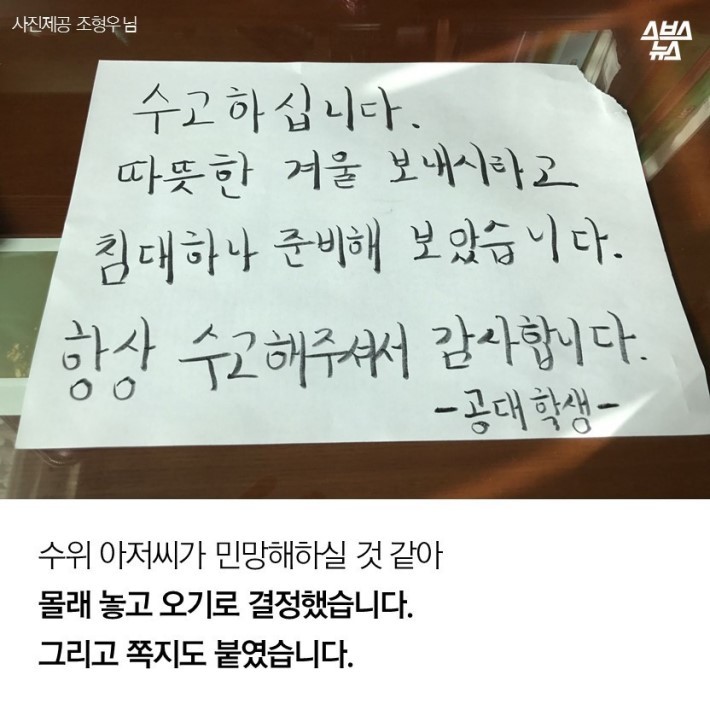 사진제공 조형우 님
스브스
뉴스
수고하십니다.
따뜻한 겨울 보내시라고
침대하나 준비해 보았습니다.
항상 수고해주셔서 감사합니다.
-공대 학생-
수위 아저씨가 민망해하실 것 같아
몰래 놓고 오기로 결정했습니다.
그리고 쪽지도 붙였습니다.